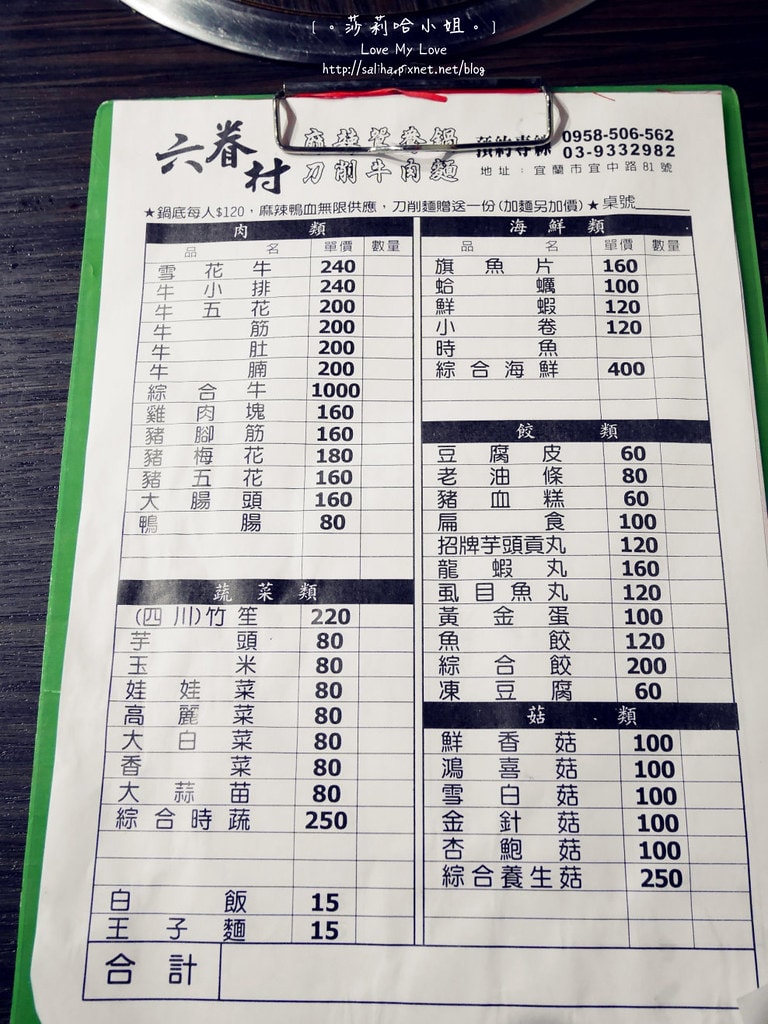 [ 。莎莉哈小姐。]
Love My Love
http://saliha.pixnet.net/blog
六眷村
刀削牛肉麵
預約專線 0958-506-562
03-9332982
地址：宜蘭市宜中路81號
★鍋底每人$120，麻辣鴨血無限供應，刀削麵贈送一份(加麵另加價)★桌號
肉類
品名 單價 數量
雪花牛 240
牛小排 240
牛五花 200
牛筋 200
牛肚 200
牛腩 200
綜合牛 1000
雞肉塊 160
豬腳筋 160
豬梅花 180
豬五花 160
大腸頭 160
鴨腸 80
蔬菜類
(四川)竹笙 220
芋頭 80
玉米 80
娃娃菜 80
高麗菜 80
大白菜 80
香菜 80
大蒜苗 80
綜合時蔬 250
白飯 15
王子麵 15
合計
海鮮類
品名 單價 數量
旗魚片 160
蛤蠣 100
鮮蝦 120
小卷 120
時魚
綜合海鮮 400
餃類
豆腐皮 60
老油條 80
豬血糕 60
扁食 100
招牌芋頭貢丸 120
龍蝦丸 160
虱目魚丸 120
黃金蛋 100
魚餃 120
綜合餃 200
凍豆腐 60
菇類
鮮香菇 100
鴻喜菇 100
雪白菇 100
金針菇 100
杏鮑菇 100
綜合養生菇 250